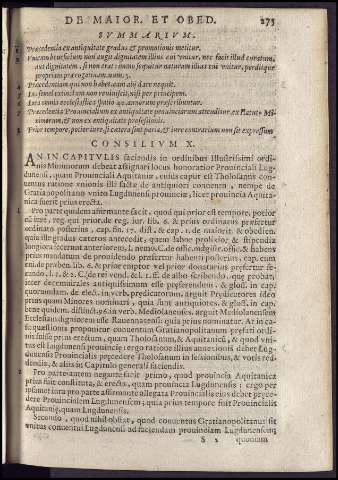 DE MAIOR. ET OBED. 275
SVMMARIVM.
Præcedentia ex antiquitate gradus & promotionis metitur.
Vnicum beneficium non auget dignitatem illius cui vnitur, nec facit illud curatum,
aut dignitatem, si non erat: immo sequitur naturam illius cui vnitur, perditque
propriam prærogatiuam. num. 5.
Præcedentiam qui non habet, eam alij dare nequit.
Ius semel extinctum non reuiuiscit, nisi per principem.
Iura omnia ecclesiastica spatio 40 annorum præscribuntur.
Præcedentia Prouincialium ex antiquitate prouinciarum attenditur ex statut. Mi-
nimorum, & non ex antiquitate professionis.
Prior tempore, potior iure, si cætera sint paria, & iure contrarium non sit expressum
CONSILIVM X.
AN IN CAPITVLIS faciendis in ordinibus Illustrissimi ordi-
nis Minimorum debeat assignari locus honoratior Prouinciali Lug-
dunensi, quam Prouinciali Aquitaniæ, cuius caput est Tholosanus con-
uentus ratione vnionis illi factæ de antiquiori conuentu, nempe de
Gratianopolitano vnitus Lugdunensi prouinciæ, licet prouincia Aquita-
nica fuerit prius erecta.
Pro parte quidem affirmante facit, quod qui prior est tempore, potior
est iure, reg. qui prior, de reg. iur. lib. 6. & prius ordinatus præfertur
ordinato posterius, cap. fin. 17. dist. & cap. 1. de maiorit. & obedien.
quia ille gradus cæteros antecedit, quem labor prolixior & stipendia
longiora fecerunt anteriorem, l. nemo, C. de offic. magistr. offic. & habens
prius mandatum de prouidendo præfertur habenti posterius, cap. eum
cui de præben. lib. 6. & prior emptor vel prior donatarius præfertur se-
cundo, l. 1. & 2. C. de rei vend. & l. 1. ff. de albo scribendo, quæ probat,
inter decemuirales antiquissimum esse præferendum, & gloss. in cap.
quorumdam, de elect. in verb. prædicatorum, arguit Prædicatores ideo
prius quam Minores nominari, quia sunt antiquiores, & gloss. in cap.
bene quidem, distinct. 96. in verb. Mediolanenses, arguit Mediolanensem
Ecclesiam digniorem esse Rauennatensi quia prius nominatur. At in ca-
su quæstionis proponitur conuentum Gratianopolitanum præferri ordi-
nis fuisse primum erectum, quam Tholosanum, & Aquitanicum, & quod vni-
tus est Lugdunensi prouinciæ: ergo ratione illius annexionis debet Lug-
dunensis Prouincialis præcedere Tholosanum in sessionibus, & votis red-
dendis, & aliis in Capitulo generali faciendis.
Pro parte autem negante facit primo, quod prouincia Aquitanica
prius fuit constituta, & erecta, quam prouincia Lugdunensis; ergo per
ipsamet iura pro parte affirmante allegata Prouincialis eius debet præce-
dere Prouincialem Lugdunensem; quia prius tempore fuit Prouincialis
Aquitaniæ, quam Lugdunensis.
Secundo, quod nihil obstat, quod conuentus Gratianopolitanus sit
vnitus conuentui Lugdunensi ad faciendam prouinciam Lugdunensem;
S 2 quoniam